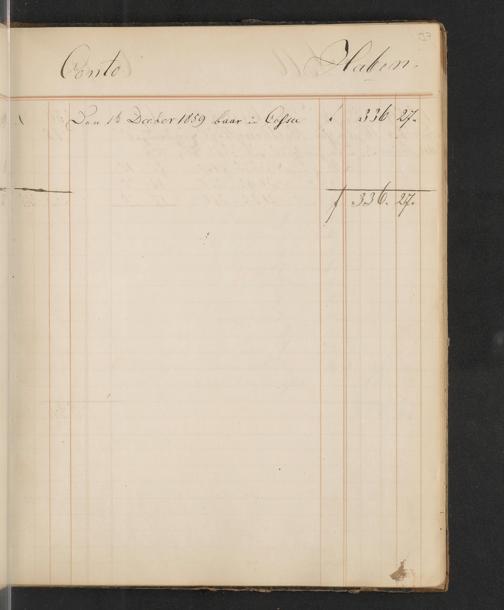 97
Conto Haben.
Den 1t Decbber 1859 baar in Cassa f 336 27.
f 336. 27.